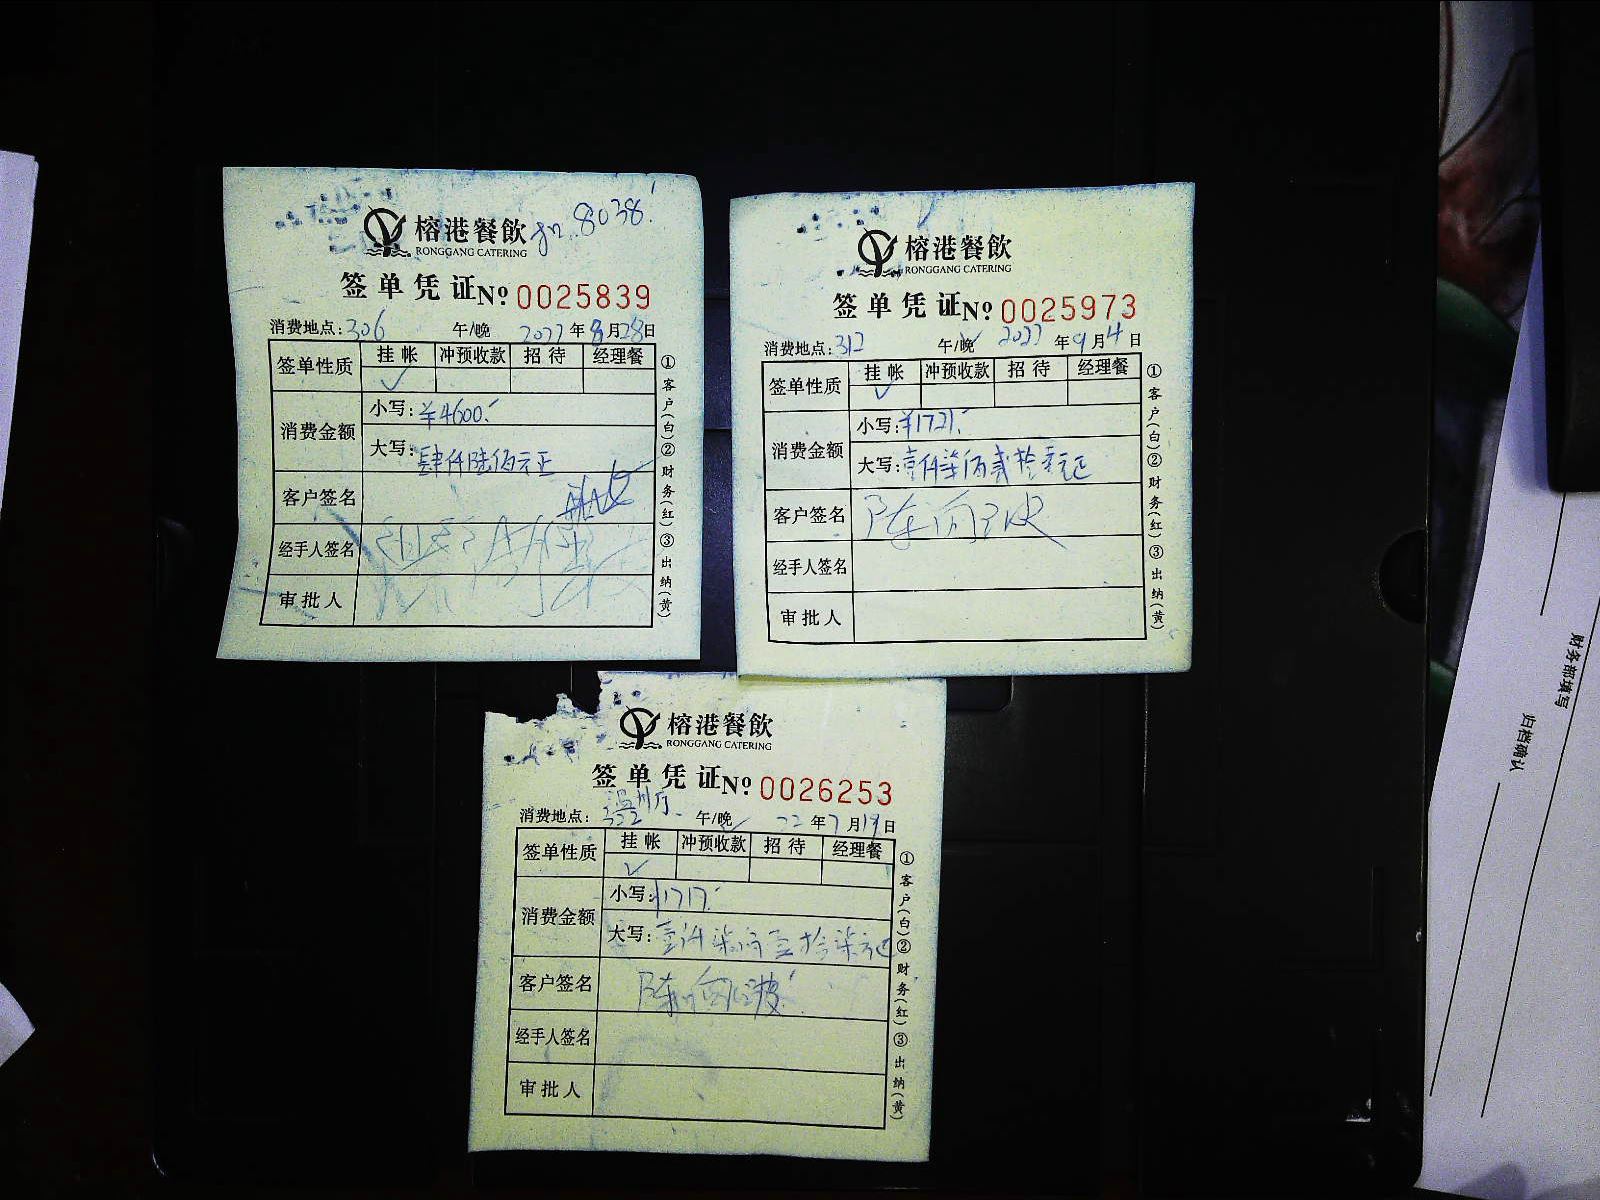 8038
榕港餐飲
RONGGANG CATERING
签单凭证 № 0025839
消费地点: 306 午/晚 2022年8月28日
签单性质 挂帐 冲预收款 招待 经理餐
✓
消费金额 小写: ¥4600.
大写: 肆仟陆佰元正
客户签名
经手人签名
审批人
①客户(白)②财务(红)③出纳(黄)
榕港餐飲
RONGGANG CATERING
签单凭证 № 0025973
消费地点: 312 午/晚✓ 2022年9月4日
签单性质 挂帐 冲预收款 招待 经理餐
✓
消费金额 小写: ¥1721.
大写: 壹仟柒佰贰拾壹元正
客户签名 陈向波
经手人签名
审批人
①客户(白)②财务(红)③出纳(黄)
榕港餐飲
RONGGANG CATERING
签单凭证 № 0026253
温州厅
消费地点: 322 午/晚✓ 22年7月19日
签单性质 挂帐 冲预收款 招待 经理餐
✓
消费金额 小写: ¥1717.
大写: 壹仟柒佰壹拾柒元正
客户签名 陈向波
经手人签名
审批人
①客户(白)②财务(红)③出纳(黄)
财务部填写
归档确认